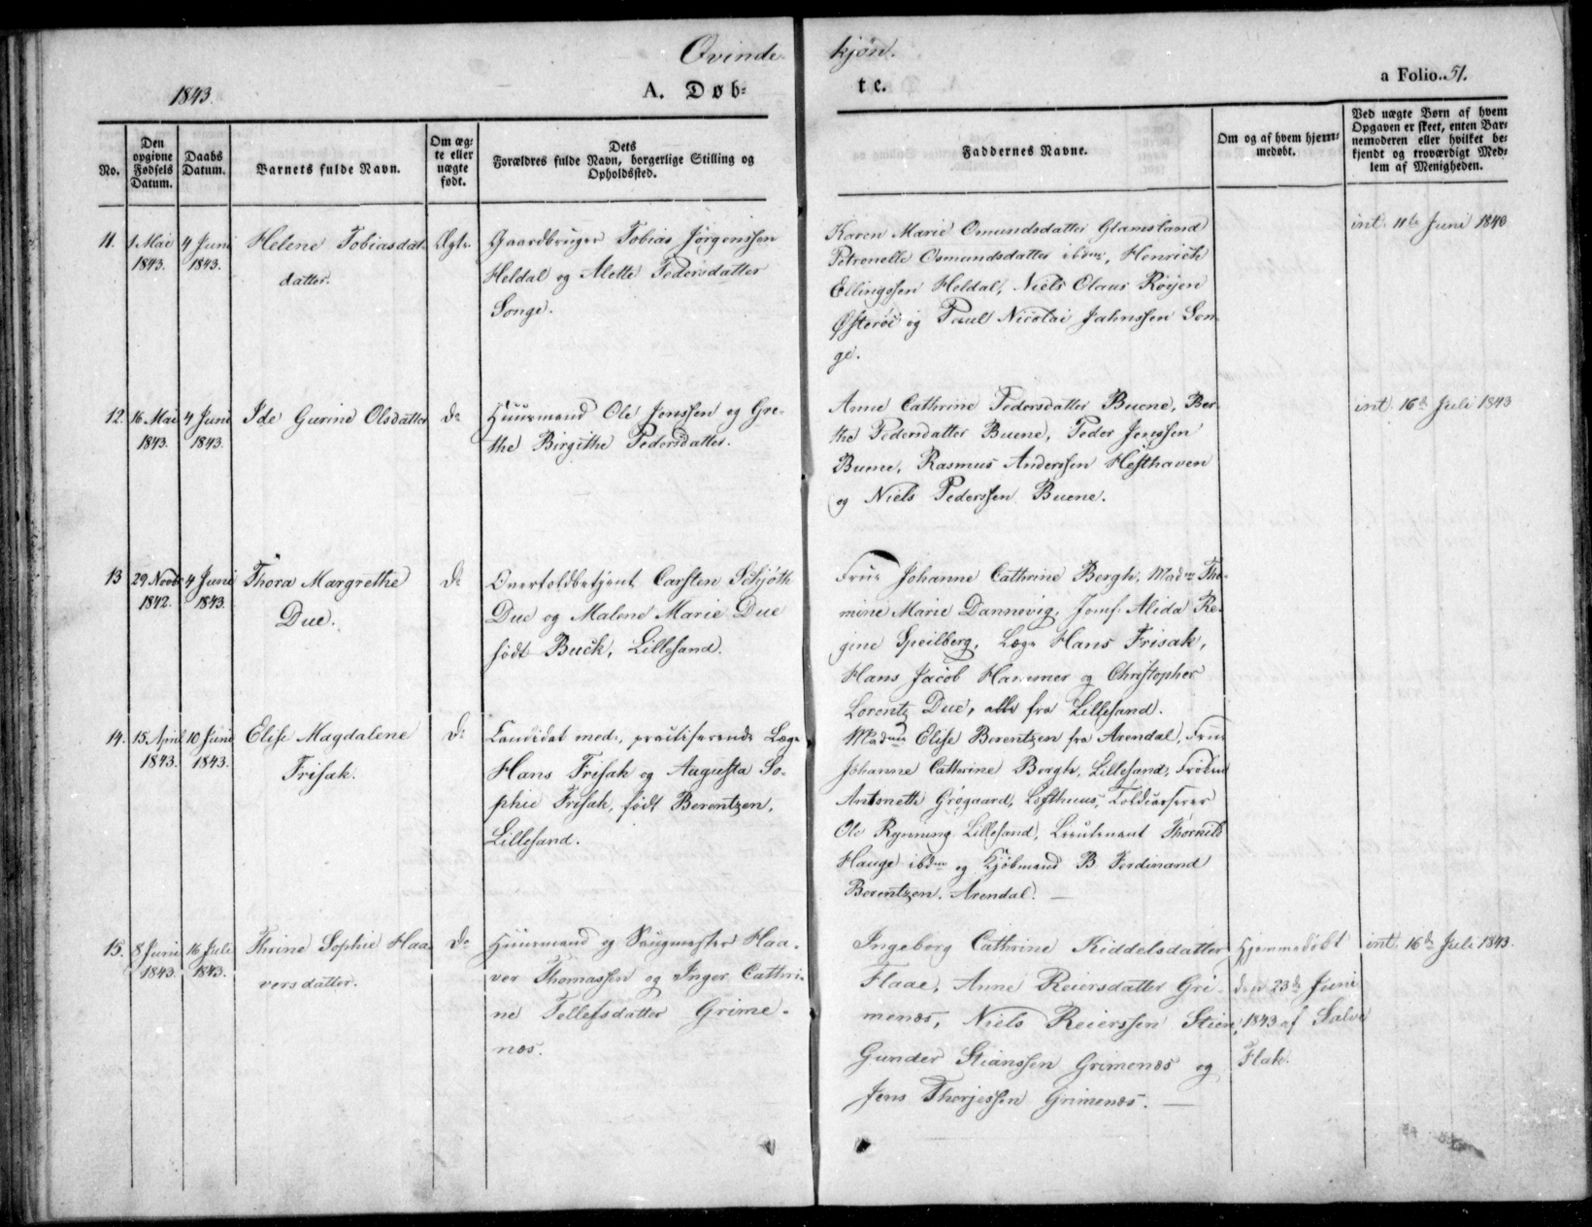 Qvinde-
kjøn.
1843.
A. Døb-
te.
a Folio 51.
No.
Den opgivne Fødsels Datum.
Daabs Datum.
Barnets fulde Navn.
Om ægte eller uægte født.
Dets Forældres fulde Navn, borgerlige Stilling og Opholdssted.
Faddernes Navne.
Om og af hvem hjemmedøbt.
Ved uægte Børn af hvem Opgaven er skeet, enten Barnemoderen eller hvilket bekjendt og troværdigt Medlem af Menigheden.
11.
1 Mai
1843.
4 Juni
1843.
Helene Tobiasdat-
datter.
Ægte
Gaardbruger Tobias Jørgenssen
Heldal og Alette Pedersdatter
Songe.
Karen Marie Omundsdatter Glamsland
Petronelle Osmundsdatter ibdm, Henrich
Ellingssen Heldal, Niels Olaus Røyen
Østerøe og Paul Nicolai Jahnssen Son-
ge.
int. 11te Juni 1843
12.
16 Mai
1843.
4 Juni
1843.
Ide Gurine Olsdatter
do
Huusmand Ole Jenssen og Gre-
the Birgithe Pedersdatter.
Anne Cathrine Pedersdatter Buene, Ber-
the Pedersdatter Buene, Peder Jenssen
Buene, Rasmus Anderssen Hesthaven
og Niels Pederssen Buene.
int. 16de Juli 1843
13
29 Novb.
1842.
4 Juni
1843.
Thora Margrethe
Due.
do
Overtoldbetjent Carsten Schjøth
Due og Malene Marie Due
født Buck, Lillesand.
Frue Johanne Cathrine Bergh, Madm Tho-
mine Marie Dannevig, Jomf. Alida Re-
gine Speilberg, Læge Hans Frisak,
Hans Jacob Hammer og Christopher
Lorentz Due, alle fra Lillesand.
14.
15 April
1843.
10 Juni
1843.
Elise Magdalene
Frisak.
do
Candidat med., practiserende Læge
Hans Frisak og Augusta So-
phie Frisak, født Berentzen,
Lillesand.
Madm Elise Berentzen fra Arendal, Frue
Johanne Cathrine Bergh, Lillesand, Frøken
Antonette Grøgaard, Løfthuus, Toldcasserer
Ole Rynning Lillesand, Lieutenant
Hauge ibdm og Kjøbmand B Ferdinand
Berentzen, Arendal. —
15.
8 Juni
1843.
16 Juli
1843.
Thrine Sophie Haa-
versdatter.
do
Huusmand og Saugmester Haa-
ver Thomassen og Inger Cathri-
ne Tellefsdatter Grime-
nes.
Ingeborg Cathrine Kiddelsdatter
Flaae, Anne Reiersdatter Gri-
menæs, Niels Reierssen Stien,
Gunder Stianssen Grimenæs og
Jens Thorjessen Grimenæs. —
Hjemmedøbt
den 23de Juni
1843 af Salve
Flak.
int. 16de Juli 1843.